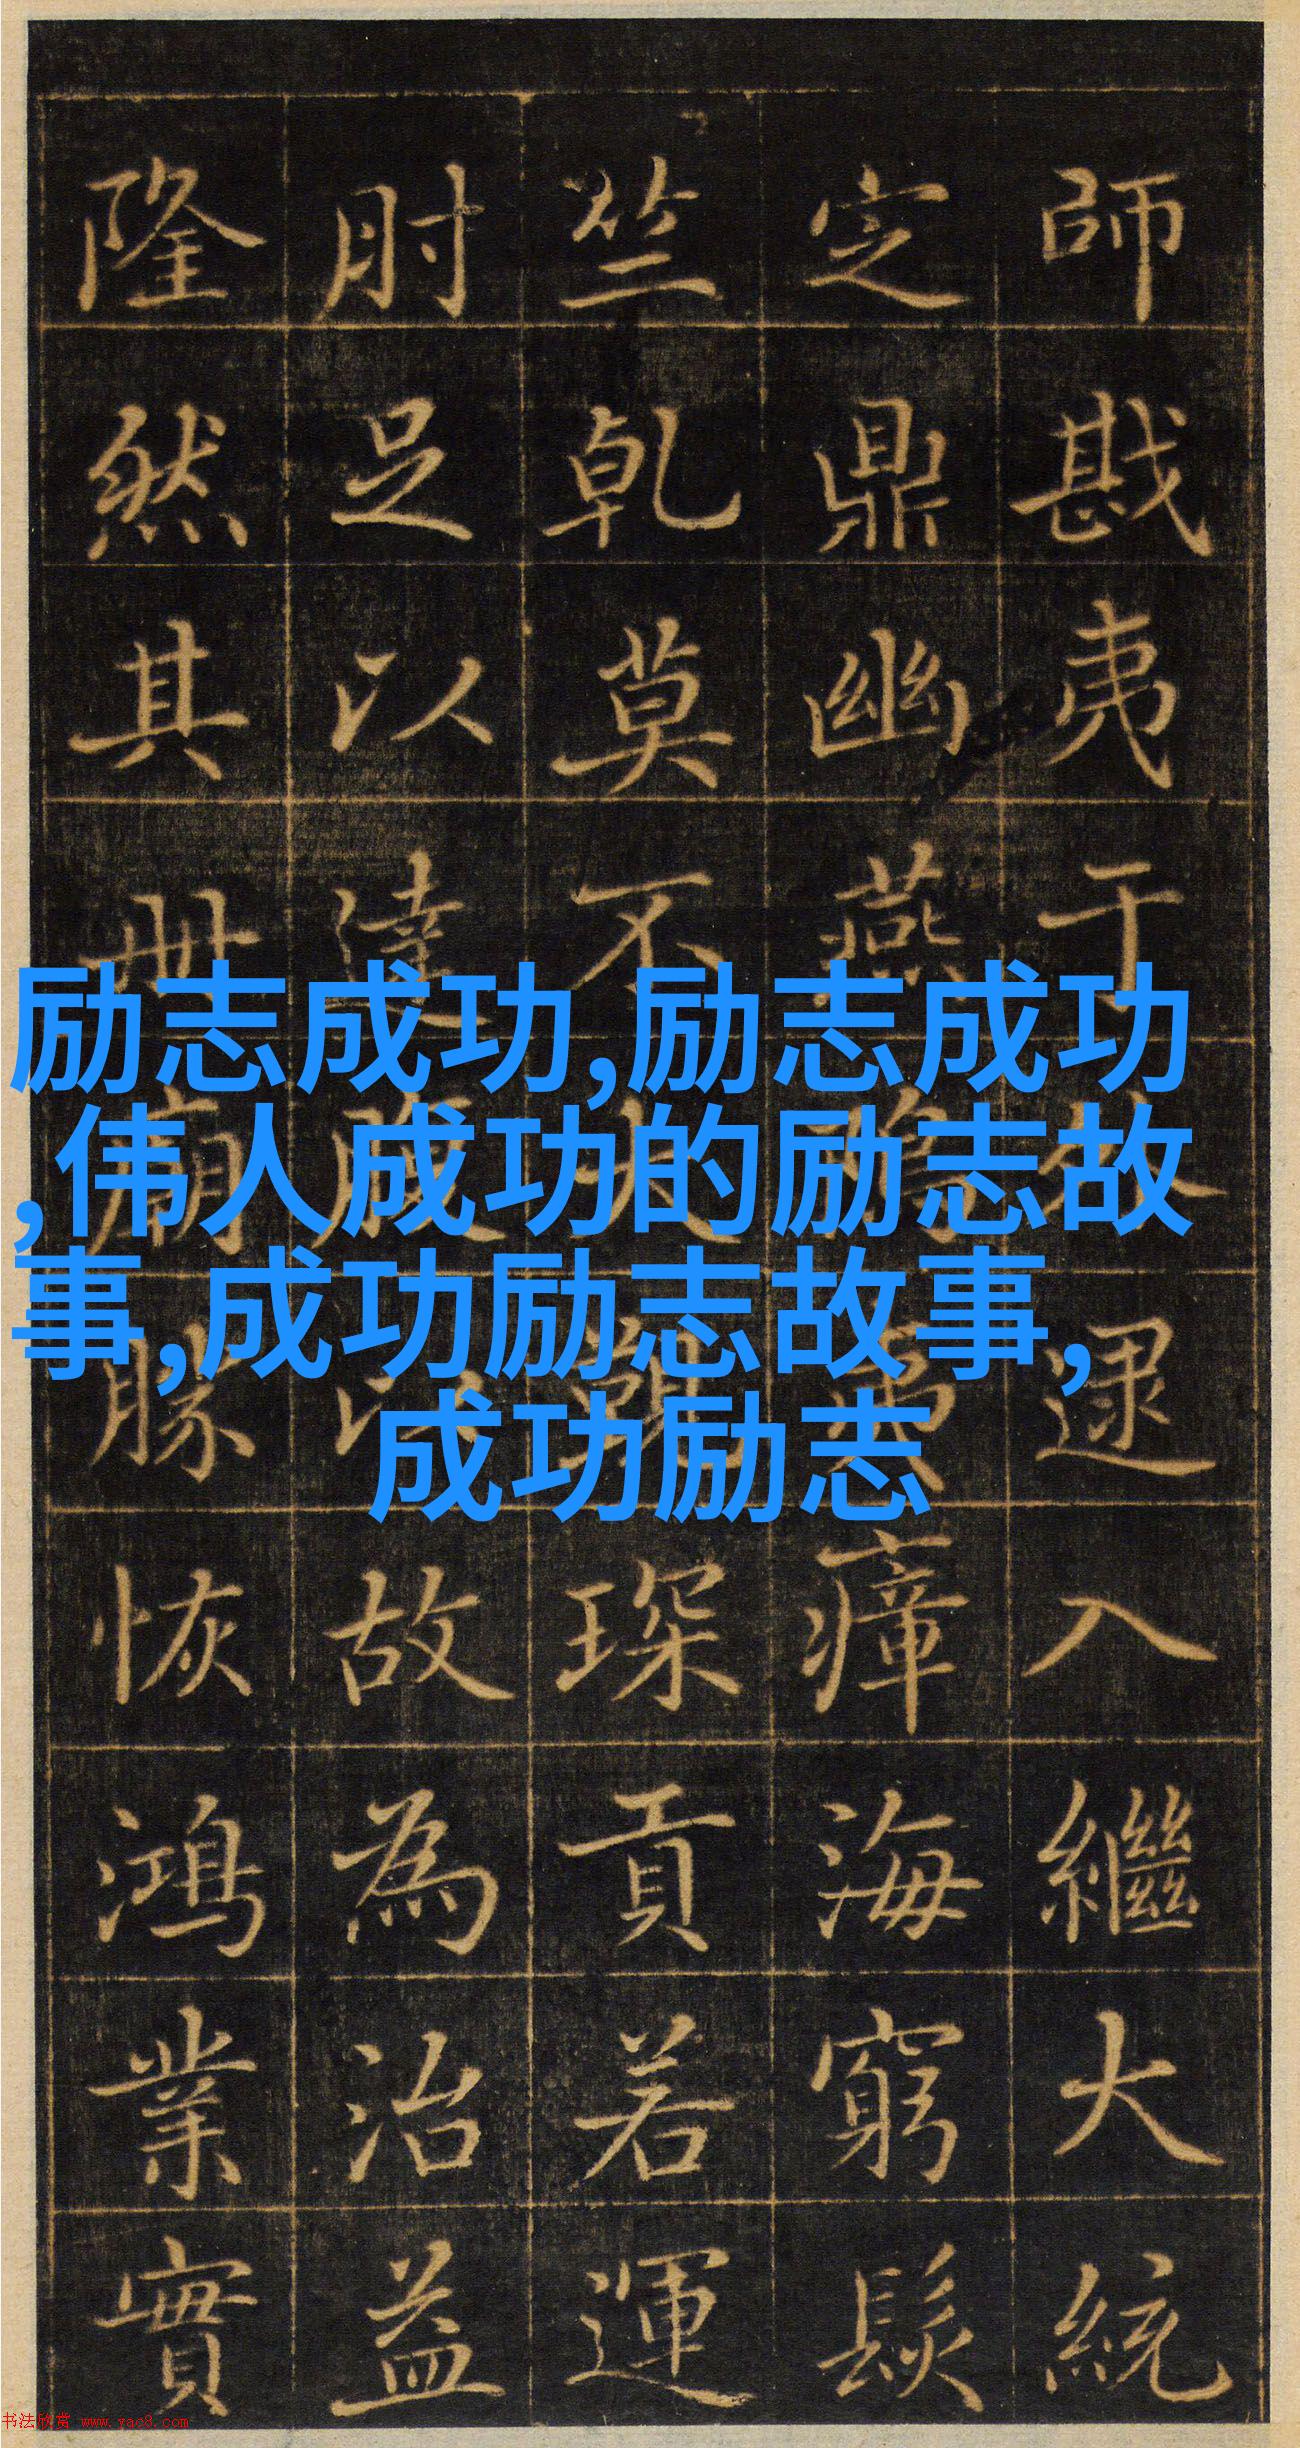 励志成功,励志成功
,伟人成功的励志故
事,成功励志故事,
成功励志
師戡夷于逯入繼大統
定鼎幽燕瘴海窮髮
竺乾莫不琛貢若運
肘足以達故為治益
隆然其册廟勝恢鴻業實
书法欣赏 www.yac8.com